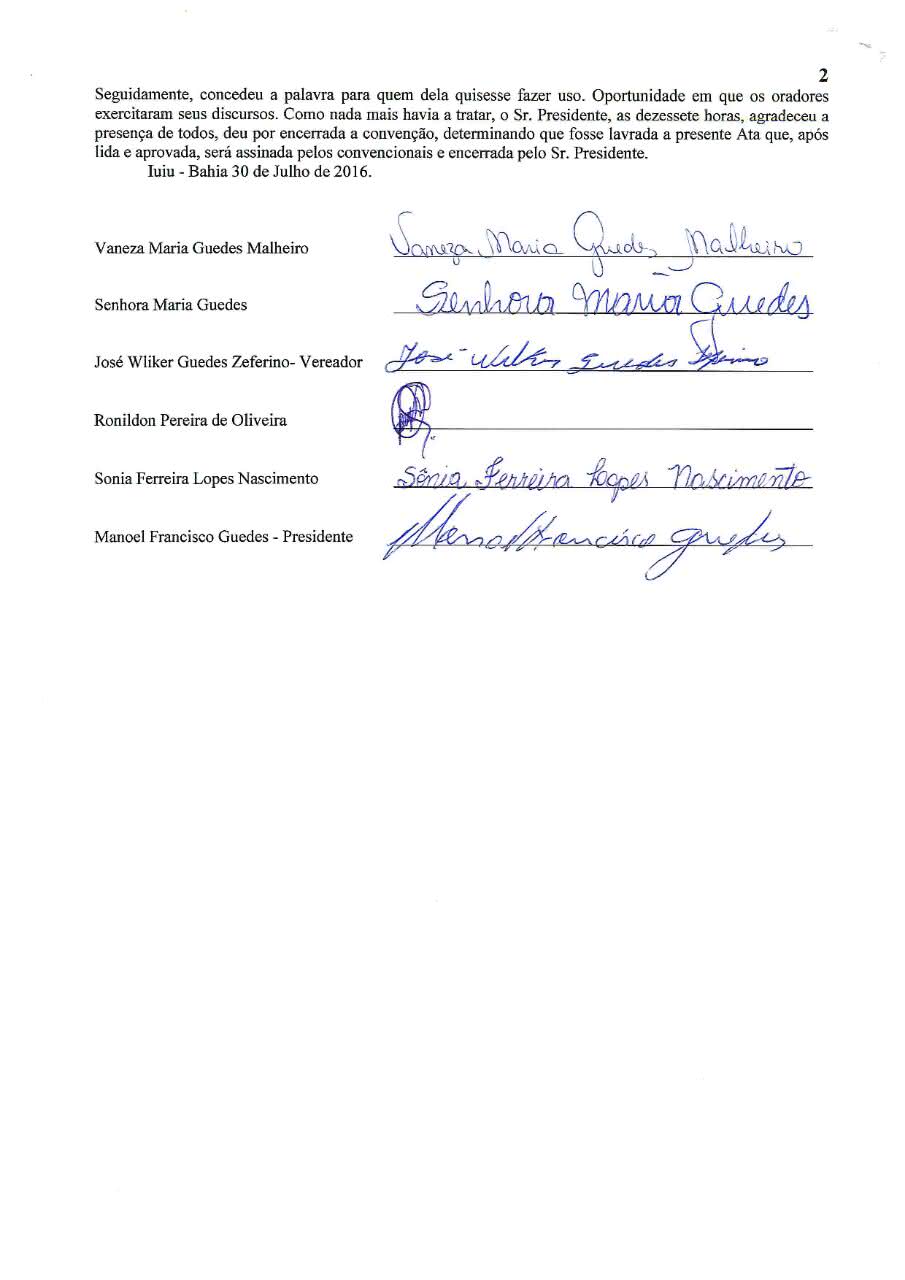 2
Seguidamente, concedeu a palavra para quem dela quisesse fazer uso. Oportunidade em que os oradores
exercitaram seus discursos. Como nada mais havia a tratar, o Sr. Presidente, as dezessete horas, agradeceu a
presença de todos, deu por encerrada a convenção, determinando que fosse lavrada a presente Ata que, após
lida e aprovada, será assinada pelos convencionais e encerrada pelo Sr. Presidente.
Iuiu - Bahia 30 de Julho de 2016.
Vaneza Maria Guedes Malheiro Vaneza Maria Guedes Malheiro
Senhora Maria Guedes Senhora Maria Guedes
José Wliker Guedes Zeferino- Vereador José Wilker Guedes Zeferino
Ronildon Pereira de Oliveira
Sonia Ferreira Lopes Nascimento Sônia Ferreira Lopes Nascimento
Manoel Francisco Guedes - Presidente Manoel Francisco Guedes